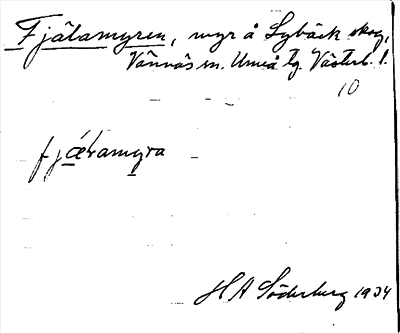 Fjälamyren, myr å Sybäck skog,
Vännäs sn. Umeå tg. Västerb. l.
10
fjälamyra
H A Söderberg 1934